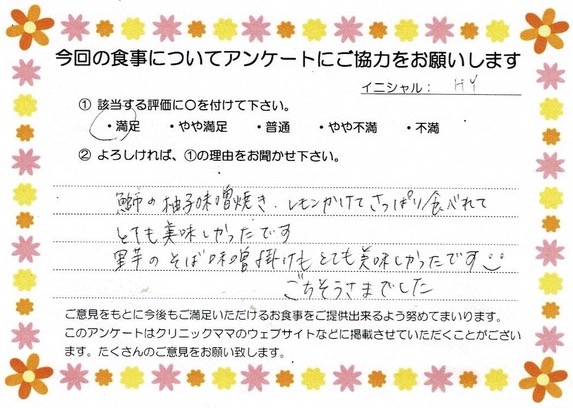 今回の食事についてアンケートにご協力をお願いします
イニシャル： HY
① 該当する評価に○を付けて下さい。
・満足 ・やや満足 ・普通 ・やや不満 ・不満
② よろしければ、①の理由をお聞かせ下さい。
鰤の柚子味噌焼き、レモンかけてさっぱり食べれて
とても美味しかったです
里芋のそば味噌掛けもとても美味しかったです
ごちそうさまでした
ご意見をもとに今後もご満足いただけるお食事をご提供出来るよう努めてまいります。
このアンケートはクリニックママのウェブサイトなどに掲載させていただくことがござい
ます。たくさんのご意見をお願い致します。